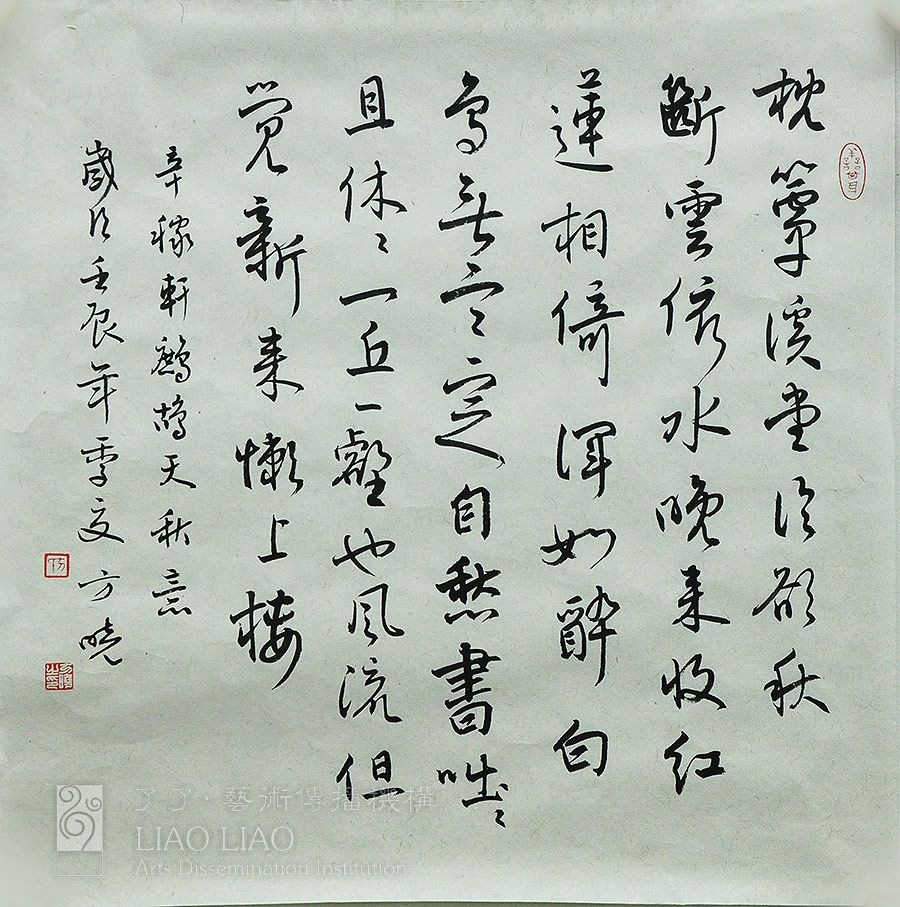 枕簟溪堂冷欲秋
斷雲依水晚来收红
蓮相倚渾如醉白
鳥無言定自愁書咄々
且休々一丘一壑也風流但
覺新来懶上樓
辛稼軒鷓鴣天秋意
歲次壬辰年季夏方曉
了了·藝術傳播機構
LIAO LIAO
Arts Dissemination Institution